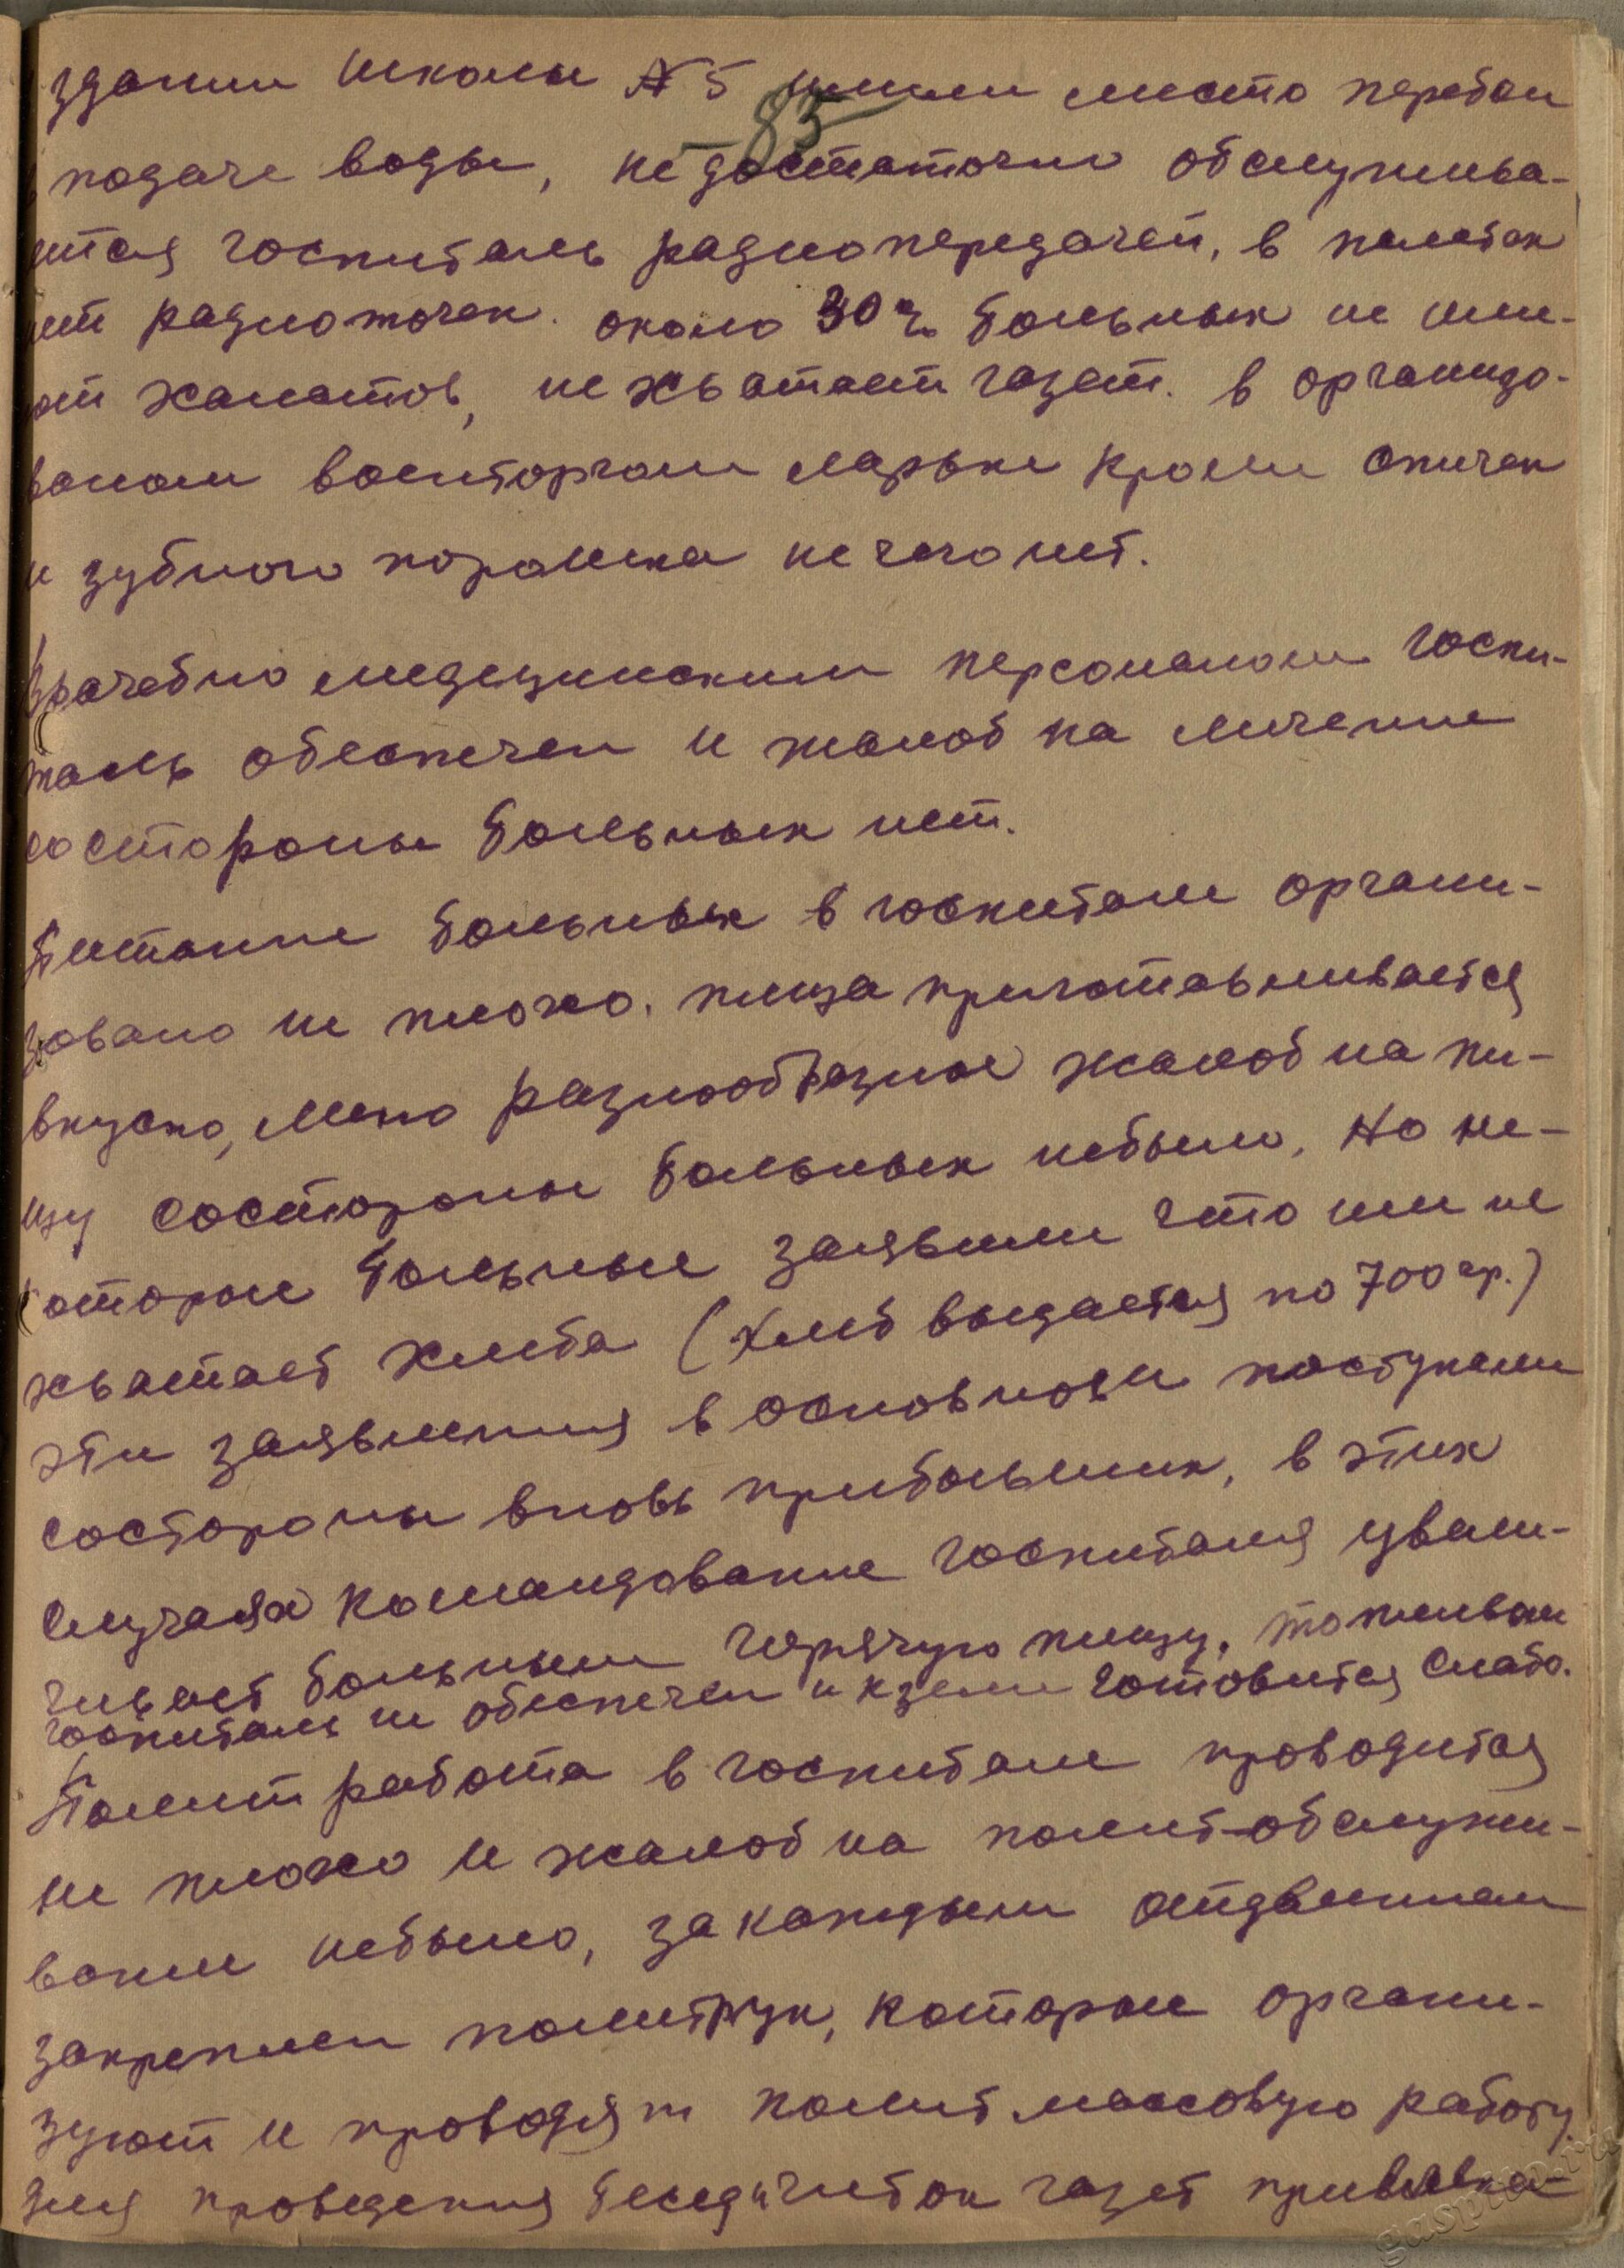 здании школы № 5 имели место перебои
-83-
подаче воды, не достаточно обслужива-
ется госпиталь радиопередачей, в палатах
нет радиоточек. около 30% больных не име-
ют халатов, не хватает газет. в организо-
ваном военторгом ларьке кроме спичек
и зубного порошка не чего нет.
Врачебно медецинским персоналом госпи-
таль обеспечен и жалоб на лечение
состороны больных нет.
Питание больных в госпитале органи-
зовано не плохо. пища приготавливается
вкусно, меню разнообразное жалоб на пи-
щу состороны больных небыло, но не-
которые больные заявили что им не
хватает хлеба (хлеб выдается по 700 гр.)
эти заявления в основном поступали
состороны вновь прибывших, в этих
случаях командование госпиталя увели-
чивает больным горячую пищу. топливом
госпиталь не обеспечен и к зиме готовится слабо.
Полит работа в госпитале проводится
не плохо и жалоб на полит-обслужи-
вание небыло, за каждым отделением
закреплен политрук, которые органи-
зуют и проводят полит массовую работу.
для проведения бесед и читок газет привлека-
gaspito.ru